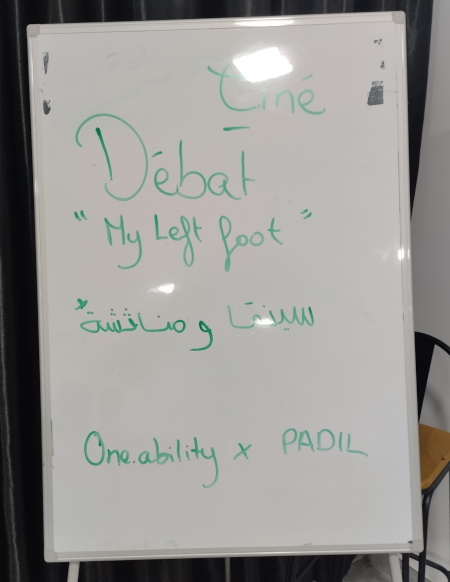 Ciné
-
Débat
" My Left foot "
سينما و مناقشة
One.ability x PADIL